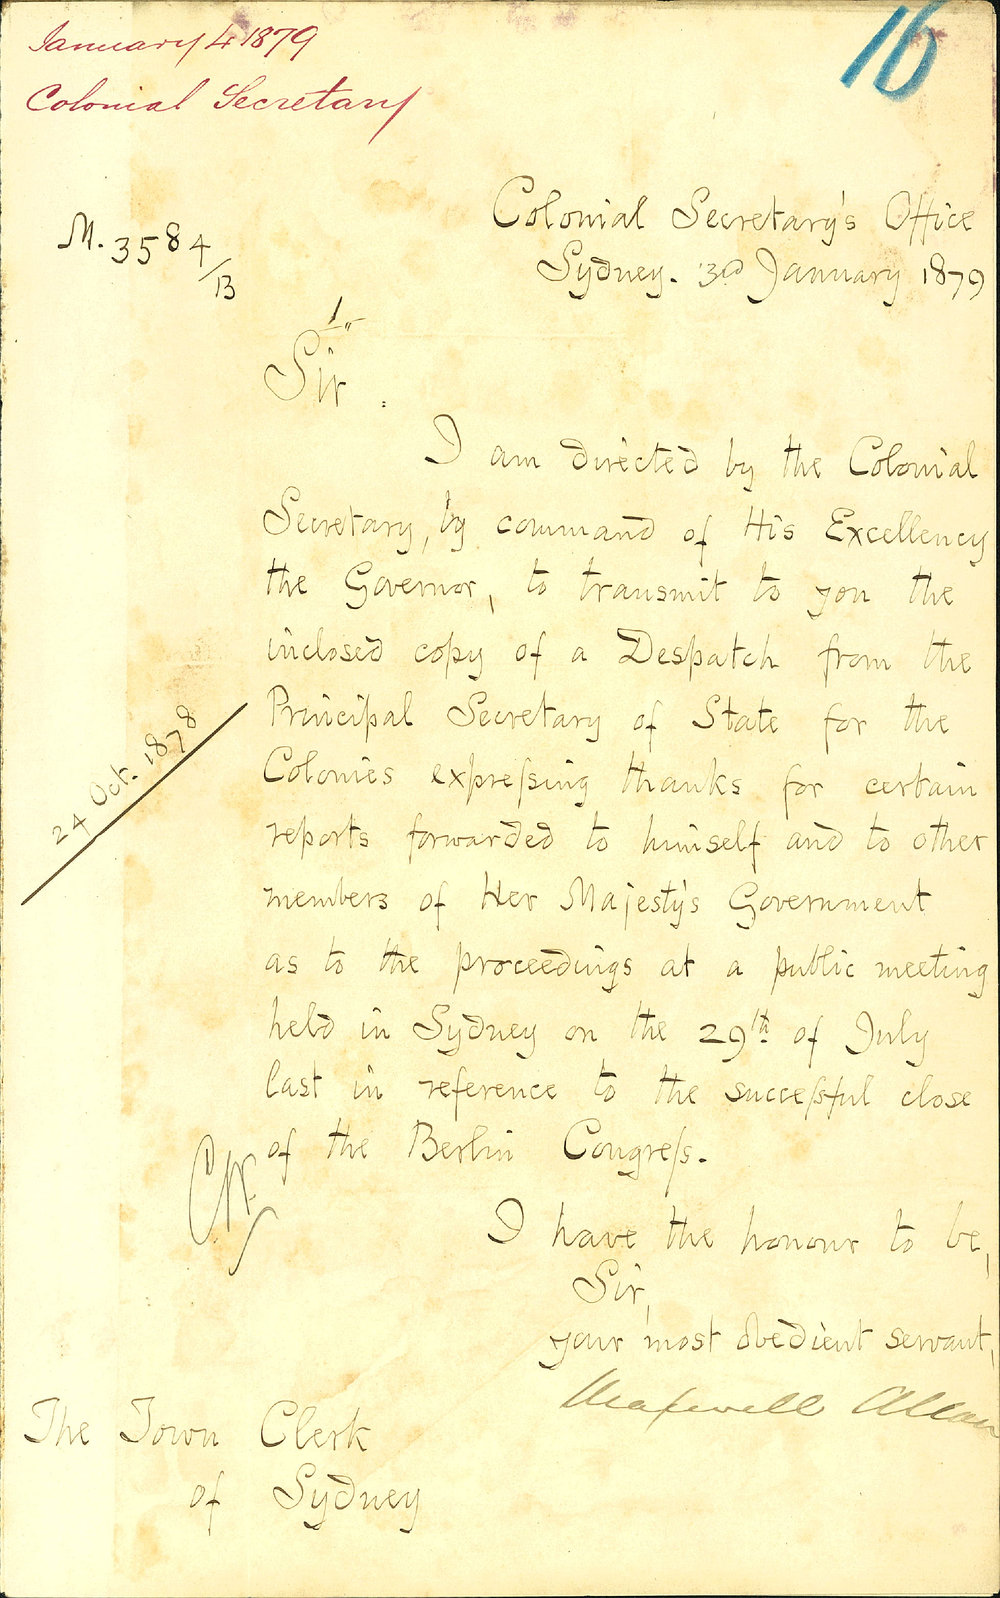 January 4 1879
Colonial Secretary
16
Colonial Secretary's Office
Sydney. 3rd January 1879
M. 3584/B
1
Sir.
I am directed by the Colonial
Secretary, by command of His Excellency
the Governor, to transmit to you the
inclosed copy of a Despatch from the
24 Oct. 1878
Principal Secretary of State for the
Colonies expreſsing thanks for certain
reports forwarded to himself and to other
members of Her Majesty's Government
as to the proceedings at a public meeting
held in Sydney on the 29th of July
last in reference to the succeſsful close
of the Berlin Congreſs.
I have the honour to be,
Sir,
your most obedient servant,
Maxwell Allan
The Town Clerk
of Sydney